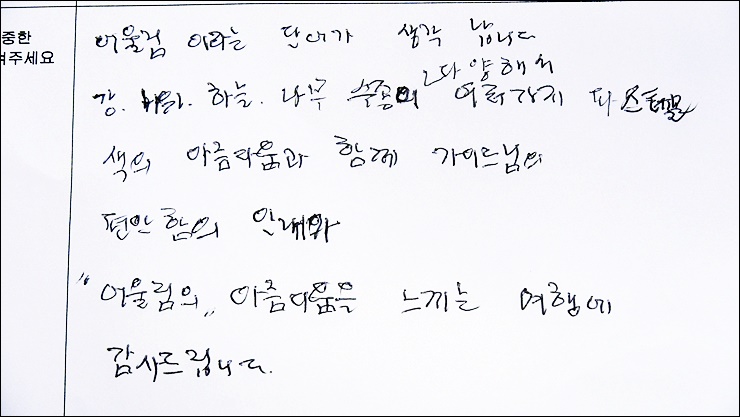 중한
려주세요
어울림 이라는 단어가 생각 납니다
다양해서
강. 바다. 하늘. 나무 여러가지 파스텔
색의 아름다움과 함께 가이드님의
편안함의 안내와
"어울림의" 아름다움을 느끼는 여행에
감사드립니다.